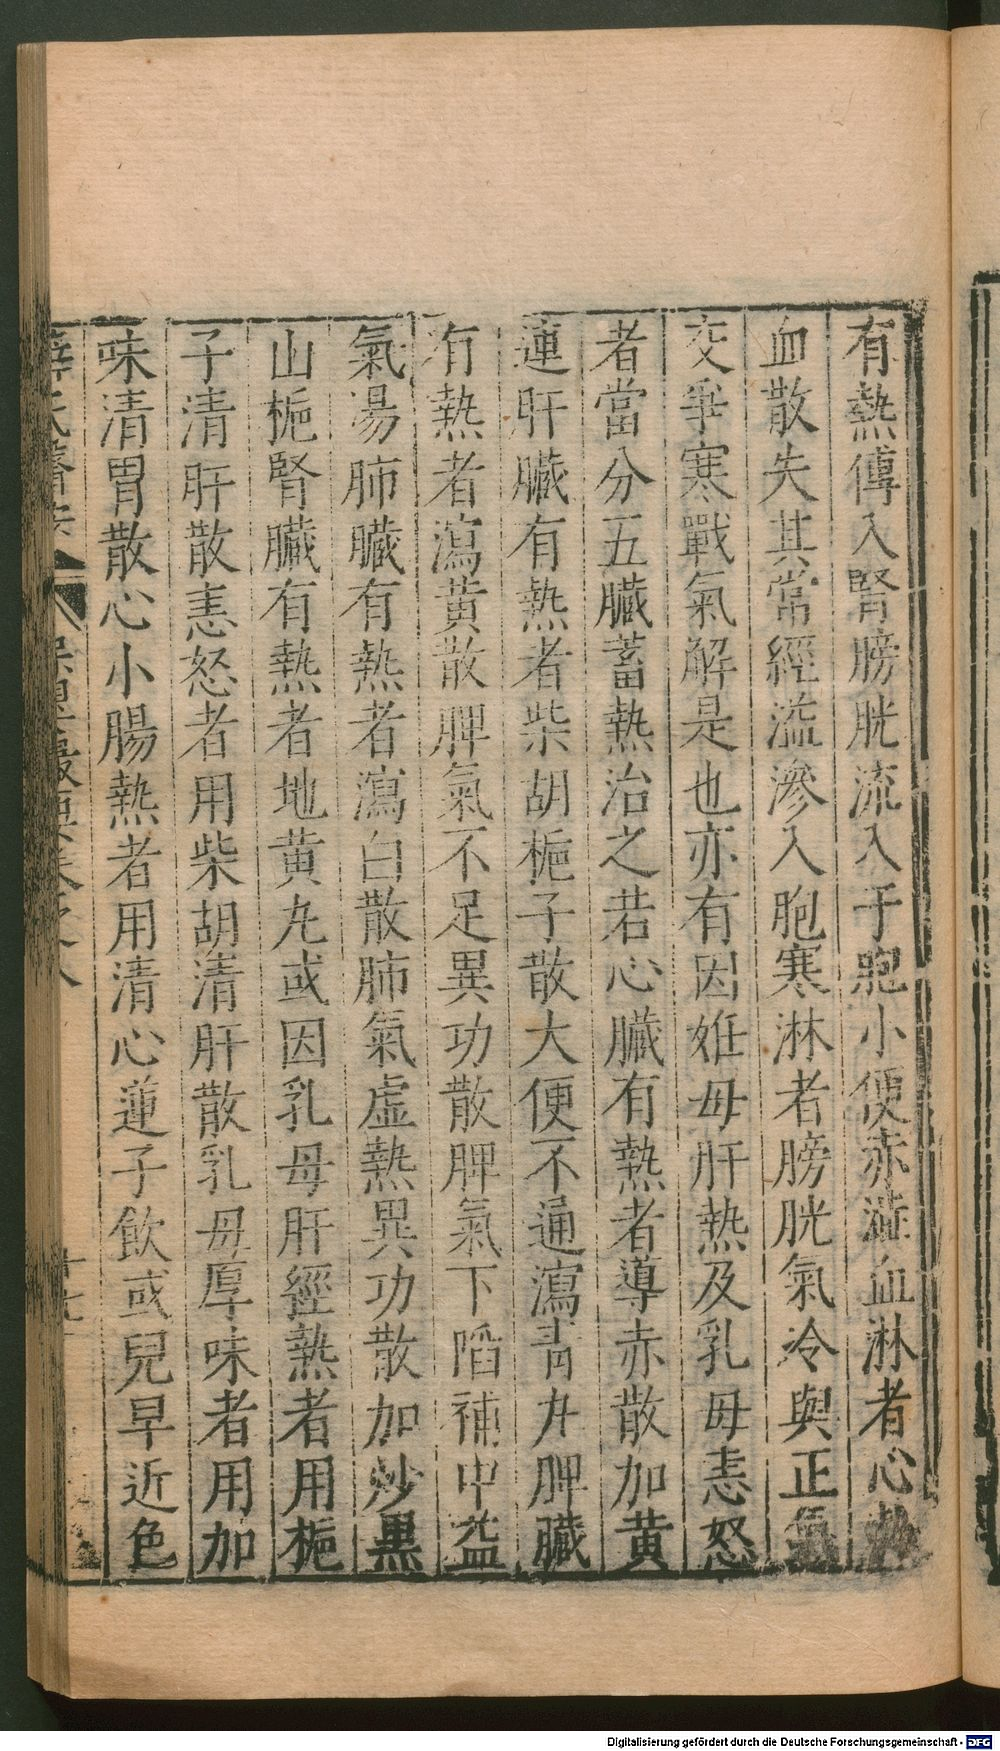 有熱傳入腎膀胱流入于胞小便赤澁血淋者心熱
血散失其常經溢滲入胞寒淋者膀胱氣冷與正氣
交爭寒戰氣解是也亦有因姙母肝熱及乳母恚怒
者當分五臟蓄熱治之若心臟有熱者導赤散加黄
連肝臟有熱者柴胡梔子散大便不通瀉青丸脾臟
有熱者瀉黄散脾氣不足異功散脾氣下陷補中益
氣湯肺臟有熱者瀉白散肺氣虛熱異功散加炒黒
山梔腎臟有熱者地黄丸或因乳母肝經熱者用梔
子清肝散恚怒者用柴胡清肝散乳母厚味者用加
味清胃散心小腸熱者用清心蓮子飲或兒早近色
薛氏醫案 保嬰撮要卷之八
Digitalisierung gefördert durch die Deutsche Forschungsgemeinschaft - DFG